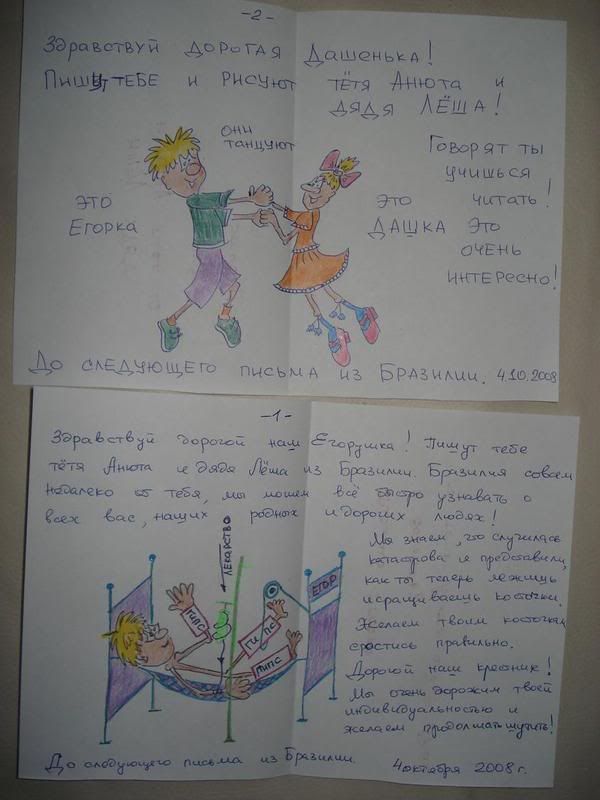 -2-
Здравствуй дорогая Дашенька!
Пишут тебе и рисуют тётя Анюта и
дядя Лёша!
они
танцуют
Это
Егорка
Это
Дашка
Говорят ты
учишься
читать!
Это
очень
интересно!
До следующего письма из Бразилии. 4.10.2008
-1-
Здравствуй дорогой наш Егорушка! Пишут тебе
тётя Анюта и дядя Лёша из Бразилии. Бразилия совсем
недалеко от тебя, мы можем всё быстро узнавать о
всех вас, наших родных и дорогих людях!
Мы знаем, что случилась
катастрофа и представили,
как ты теперь лежишь
и сращиваешь косточки.
Желаем твоим косточкам
срастись правильно.
Дорогой наш крестник!
Мы очень дорожим твоей
индивидуальностью и
желаем продолжать шутить!
лекарство
ЕГОР
ГИПС
ГИПС
ГИПС
До следующего письма из Бразилии.
4 октября 2008 г.